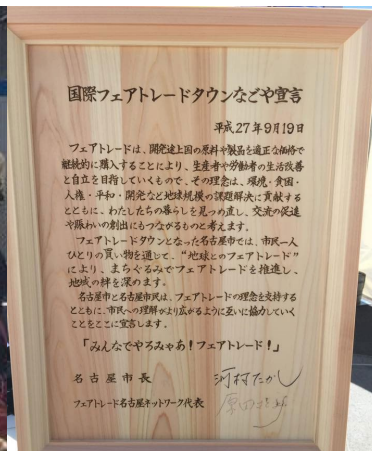 国際フェアトレードタウンなごや宣言
平成27年9月19日
フェアトレードは、開発途上国の原料や製品を適正な価格で
継続的に購入することにより、生産者や労働者の生活改善
と自立を目指していくもので、その理念は、環境・貧困・
人権・平和・開発など地球規模の課題解決に貢献する
とともに、わたしたちの暮らしを見つめ直し、交流の促進
や賑わいの創出にもつながるものと考えます。
フェアトレードタウンとなった名古屋市では、市民一人
ひとりの買い物を通じて、“地球とのフェアトレード”
により、まちぐるみでフェアトレードを推進し、
地域の絆を深めます。
名古屋市と名古屋市民は、フェアトレードの理念を支持する
とともに、市民への理解がより広がるように互いに協力していく
ことをここに宣言します。
「みんなでやろみゃあ！フェアトレード！」
名古屋市長 河村たかし
フェアトレード名古屋ネットワーク代表